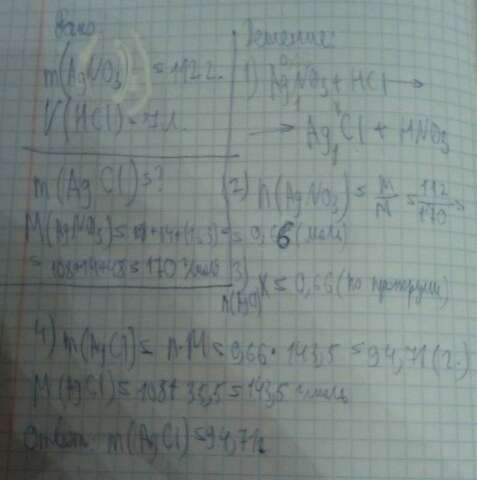 Дано
m(AgNO3) = 112 г.
V(HCl) = 7 л.
m(AgCl) = ?
M(AgNO3) = 108+14+(16·3) =
= 108+14+48 = 170 г/моль
Решение:
1) AgNO3 + HCl →
→ AgCl + HNO3
2) n(AgNO3) = m/M = 112/170 =
= 0,66 (моль)
3) n(AgCl) x = 0,66 (по пропорции)
4) m(AgCl) = n·M = 0,66·143,5 = 94,71 (г.)
M(AgCl) = 108+35,5 = 143,5 г/моль
Ответ: m(AgCl) = 94,71г